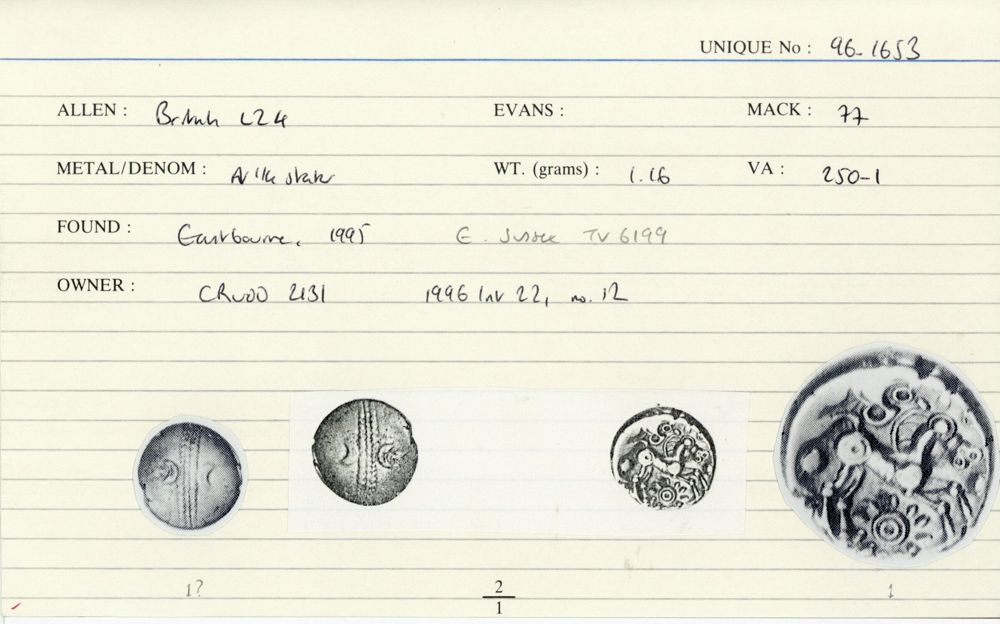 UNIQUE No : 96-1653
ALLEN : British L24 EVANS : MACK : 77
METAL/DENOM : AV 1/4 stater WT. (grams) : 1.16 VA : 250-1
FOUND : Eastbourne, 1995 E. Sussex TV 6199
OWNER : CR 2131 1996 Inv 22, no. 12
1? 2/1 1